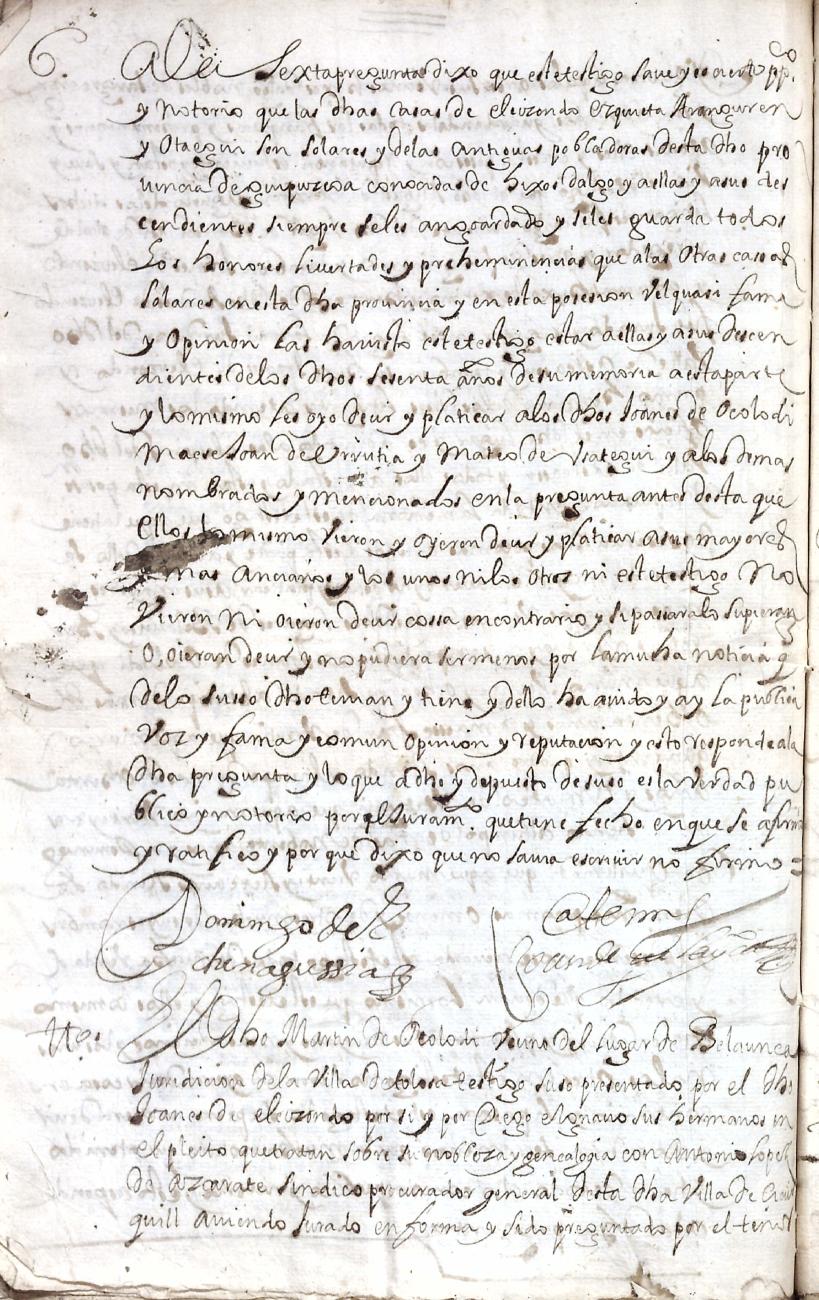 6. A la sexta pregunta dixo que este testigo save y es cierto ppco
y notorio que las dhas casas de eleizondo Ezquieta Aranguren
y Otaegui son solares y delas antiguas pobladoras desta dha pro
vincia de guipuzcoa conocidas de hixos dalgo y a ellas y a sus des
cendientes siempre seles an goardado y seles guarda todos
Los honores livertades y preheminencias que alas Otras casas
solares en esta dha provincia y en esta posesion vel quasi fama
y Opinion las ha visto este testigo estar a ellas y a sus descen
dientes delos dhos sesenta años de su memoria a esta parte
y lo mismo les oyo decir y platicar alos dhos Joanes de Ocolodi
Maese Joan de Urrutia y Mateo de Usategui y alos demas
nombrados y mencionados en la pregunta antes desta que
Ellos lo mismo vieron y oyeron decir y platicar a sus mayores
y mas ancianos y los unos ni los otros ni este testigo No
Vieron Ni oieron decir cossa en contrario y si pasara lo supieran
O, oieran decir y no pudiera ser menos por la mucha noticia q
delo susso dho tenian y tiene y dello ha avido y ay la publica
Voz y fama y comun opinion y reputacion y esto responde ala
dha pregunta y lo que a dho y depuesto de suso es la verdad pu
blico y notorio por el Juramto. que tiene fecho en que se afirmo
y ratifico y por que dixo que no savia escrivir no firmo =
Domingo de
chenagussia
Ante mi
Tto. El dho Martin de Ocolodi vecino del lugar de Belaunca
Juridicion dela Villa de tolosa testigo suso presentado por el dho
Joanes de eleizondo por si y por Diego e Ignacio sus hermanos en
el pleito que tratan sobre su nobleza y genealogia con Antonio Lopez
de Azarate sindico procurador general desta dha Villa de
quill aviendo Jurado en forma y sido preguntado por el tenor